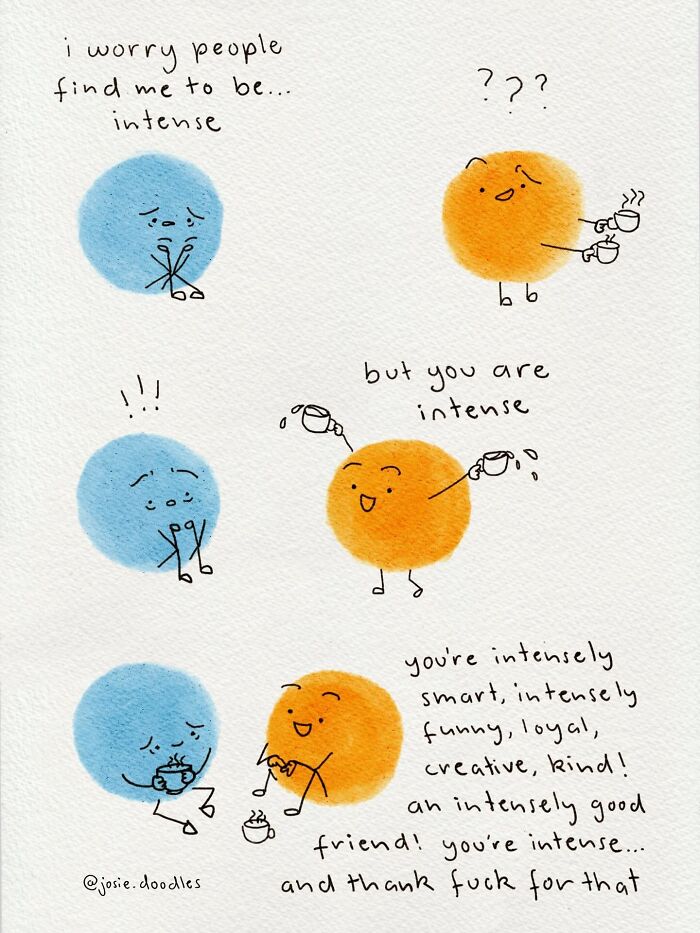 i worry people
find me to be...
intense
???
!!!
but you are
intense
you're intensely
smart, intensely
funny, loyal,
creative, kind!
an intensely good
friend! you're intense...
and thank fuck for that
@josie.doodles